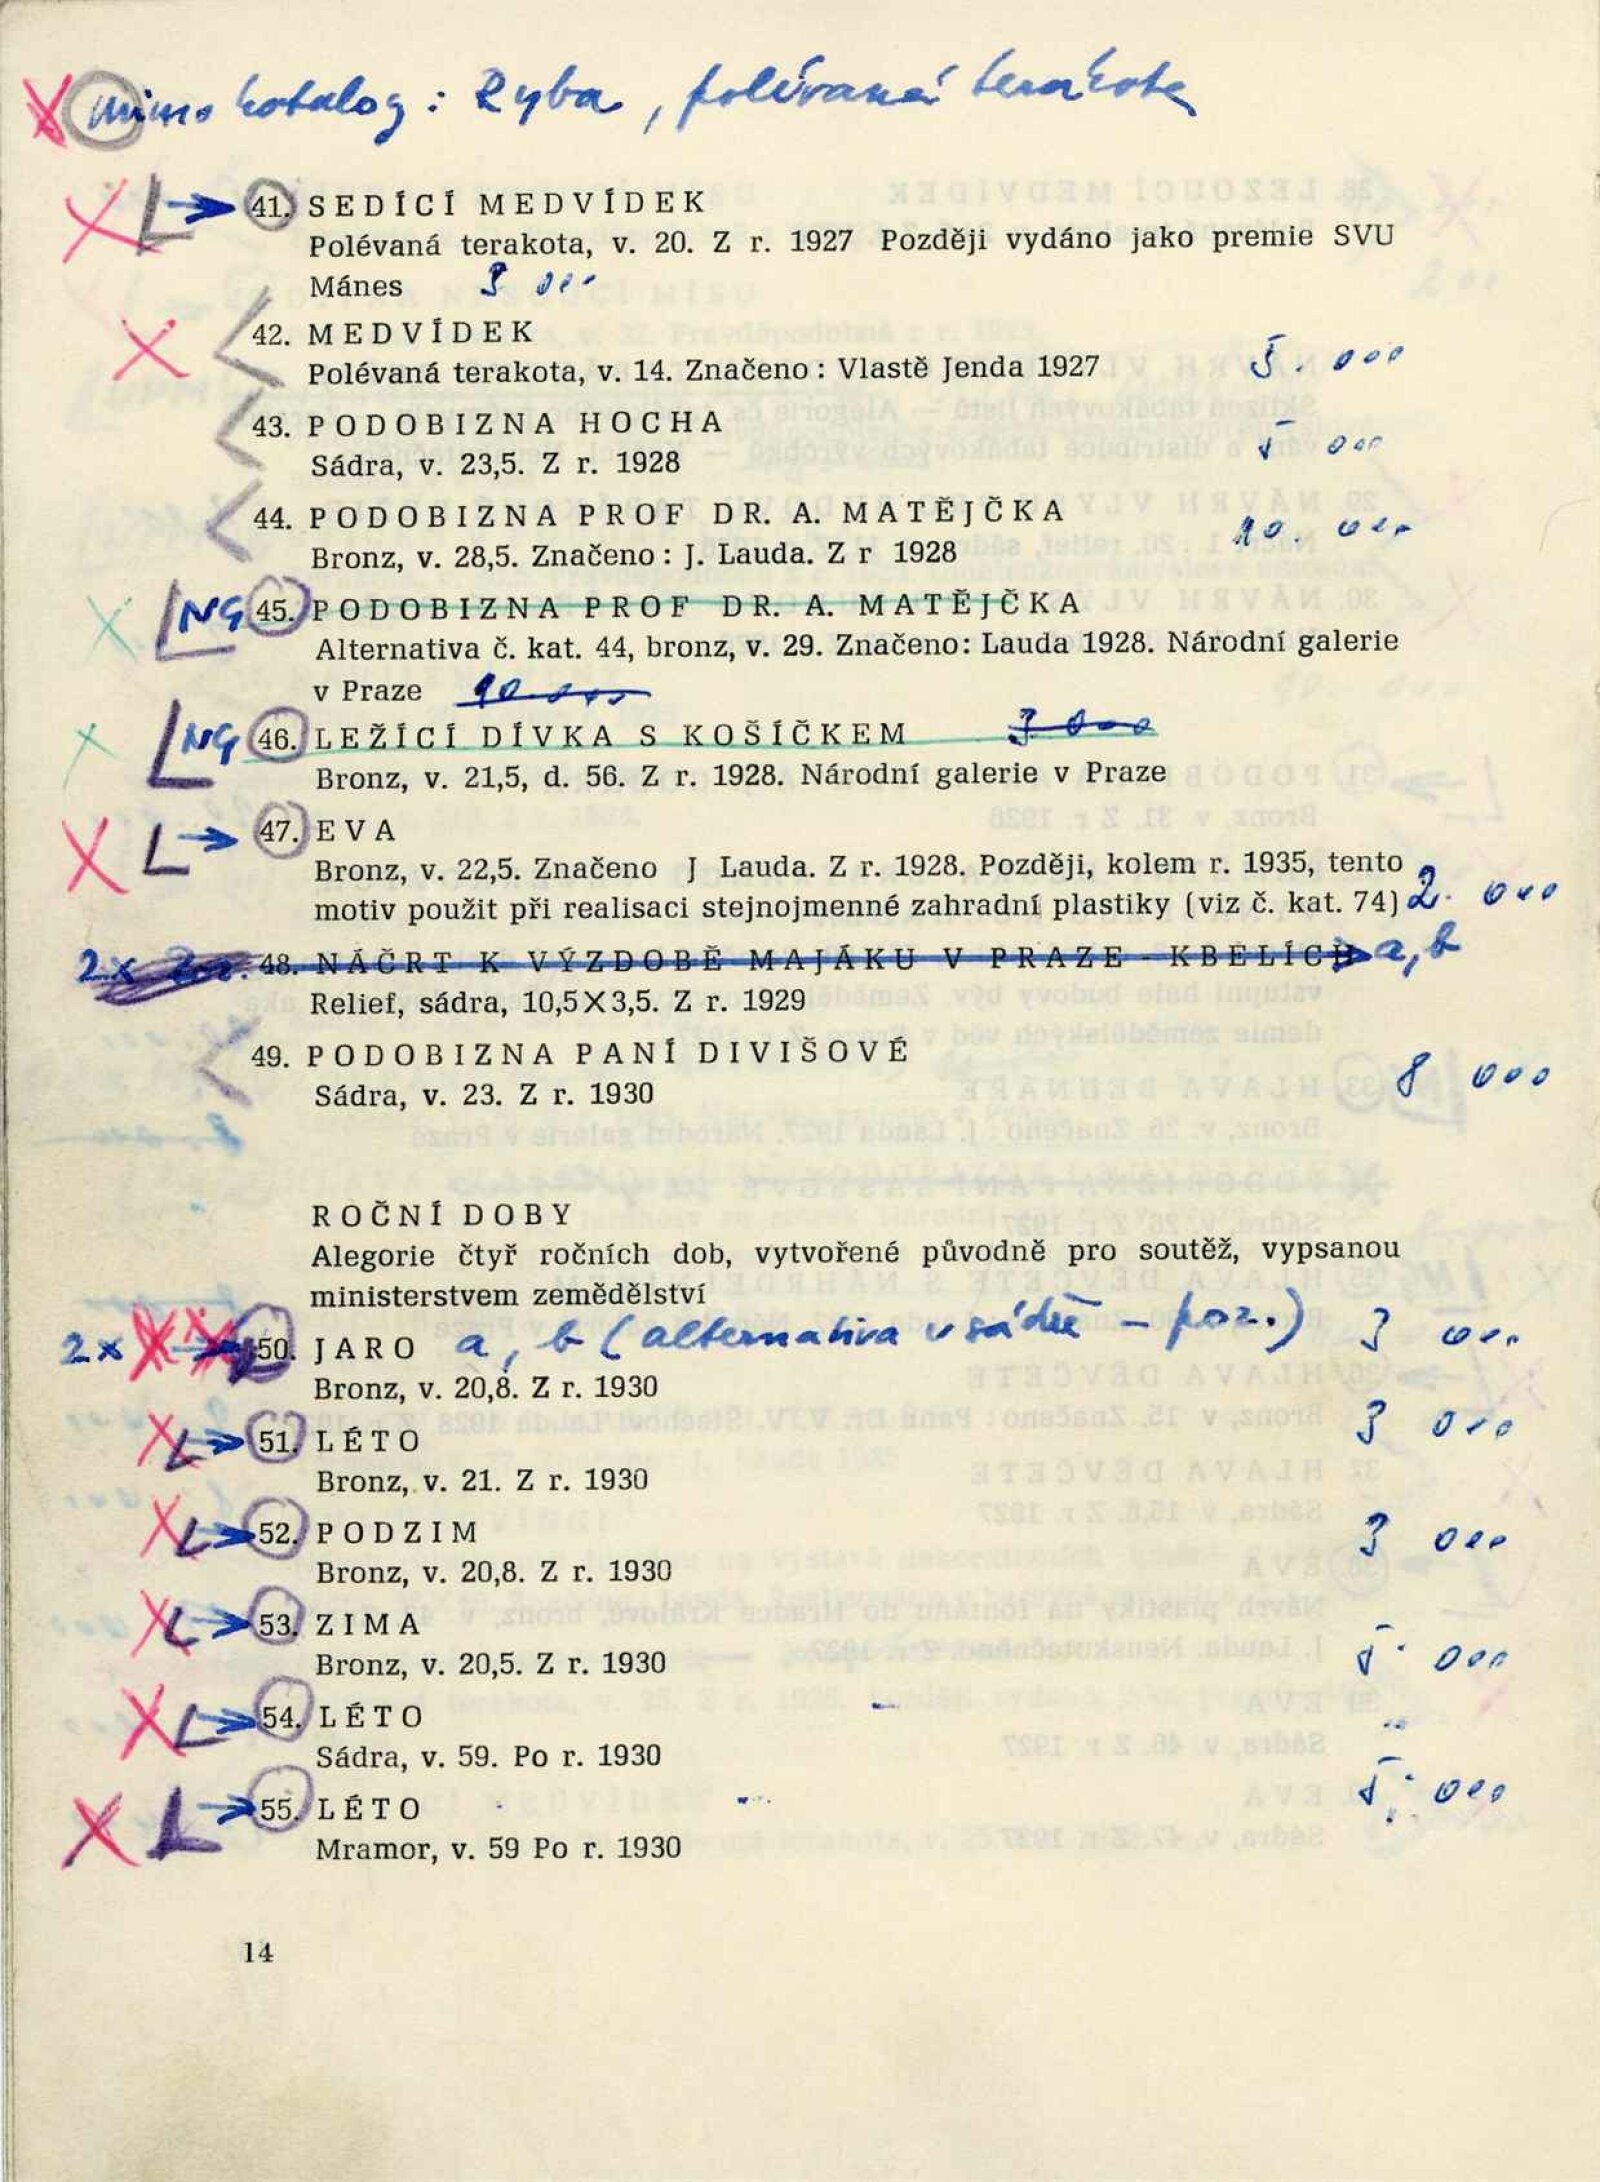 mimo katalog: Ryba, polévaná terakota
L → 41. SEDÍCÍ MEDVÍDEK
Polévaná terakota, v. 20. Z r. 1927 Později vydáno jako premie SVU
Mánes 3 000
42. MEDVÍDEK
Polévaná terakota, v. 14. Značeno: Vlastě Jenda 1927 5. 000
43. PODOBIZNA HOCHA
Sádra, v. 23,5. Z r. 1928 5 000
44. PODOBIZNA PROF DR. A. MATĚJČKA
Bronz, v. 28,5. Značeno: J. Lauda. Z r 1928 10. 000
NG 45. PODOBIZNA PROF DR. A. MATĚJČKA
Alternativa č. kat. 44, bronz, v. 29. Značeno: Lauda 1928. Národní galerie
v Praze 10.000
NG 46. LEŽÍCÍ DÍVKA S KOŠÍČKEM 3 000
Bronz, v. 21,5, d. 56. Z r. 1928. Národní galerie v Praze
L → 47. EVA
Bronz, v. 22,5. Značeno J Lauda. Z r. 1928. Později, kolem r. 1935, tento
motiv použit při realisaci stejnojmenné zahradní plastiky (viz č. kat. 74) 2. 000
2x 48. NÁČRT K VÝZDOBĚ MAJÁKU V PRAZE - KBELÍCH a, b
Relief, sádra, 10,5X3,5. Z r. 1929
49. PODOBIZNA PANÍ DIVIŠOVÉ
Sádra, v. 23. Z r. 1930 8 000
ROČNÍ DOBY
Alegorie čtyř ročních dob, vytvořené původně pro soutěž, vypsanou
ministerstvem zemědělství
2x 50. JARO a, b (alternativa v sádře - poz.) 3 000
Bronz, v. 20,8. Z r. 1930
L → 51. LÉTO 3 000
Bronz, v. 21. Z r. 1930
L → 52. PODZIM 3 000
Bronz, v. 20,8. Z r. 1930
L → 53. ZIMA
Bronz, v. 20,5. Z r. 1930 5. 000
L → 54. LÉTO
Sádra, v. 59. Po r. 1930
L → 55. LÉTO 5. 000
Mramor, v. 59 Po r. 1930
14